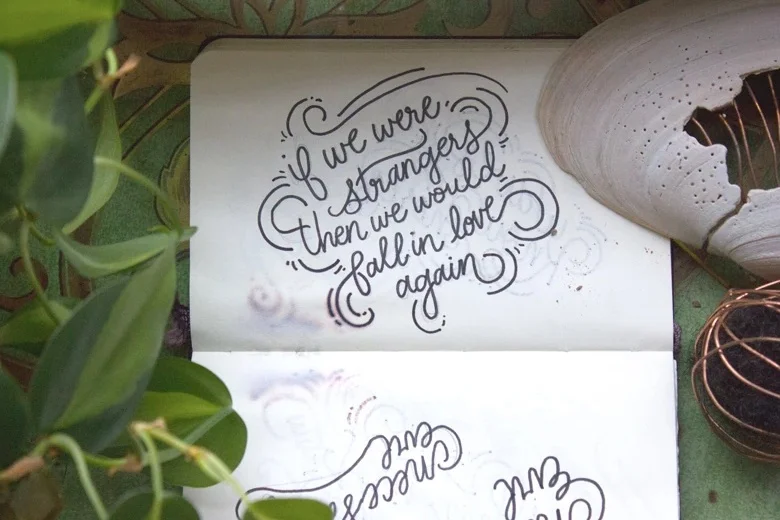 if we were
strangers
then we would
fall in love
again
evil
evil